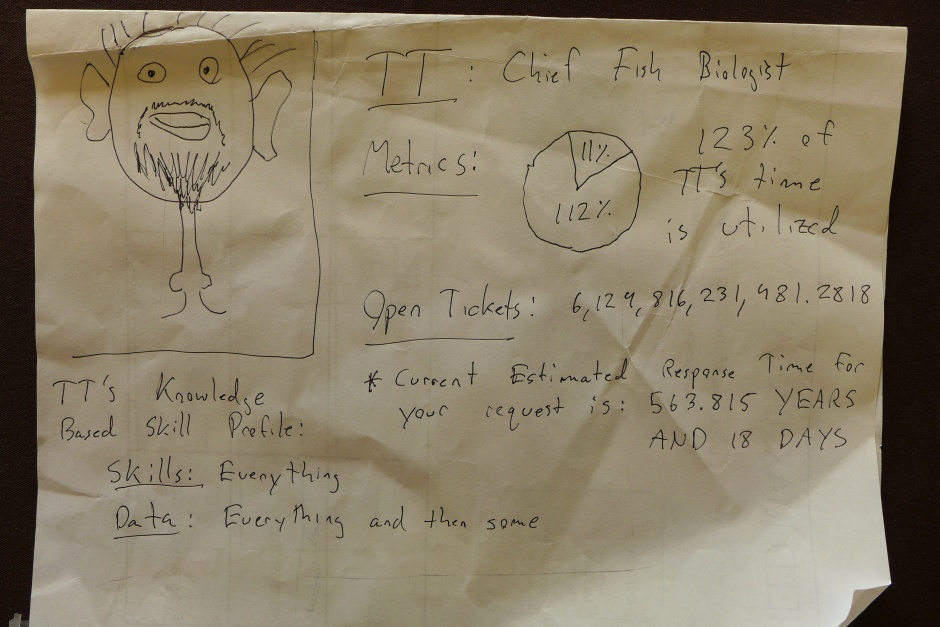 TT : Chief Fish Biologist
Metrics:
11%
112%
123% of
TT's time
is utilized
Open Tickets: 6,129,816,231,981.2818
* Current Estimated Response Time for
your request is: 563.815 YEARS
AND 18 DAYS
TT's Knowledge
Based Skill Profile:
Skills: Everything
Data: Everything and then some